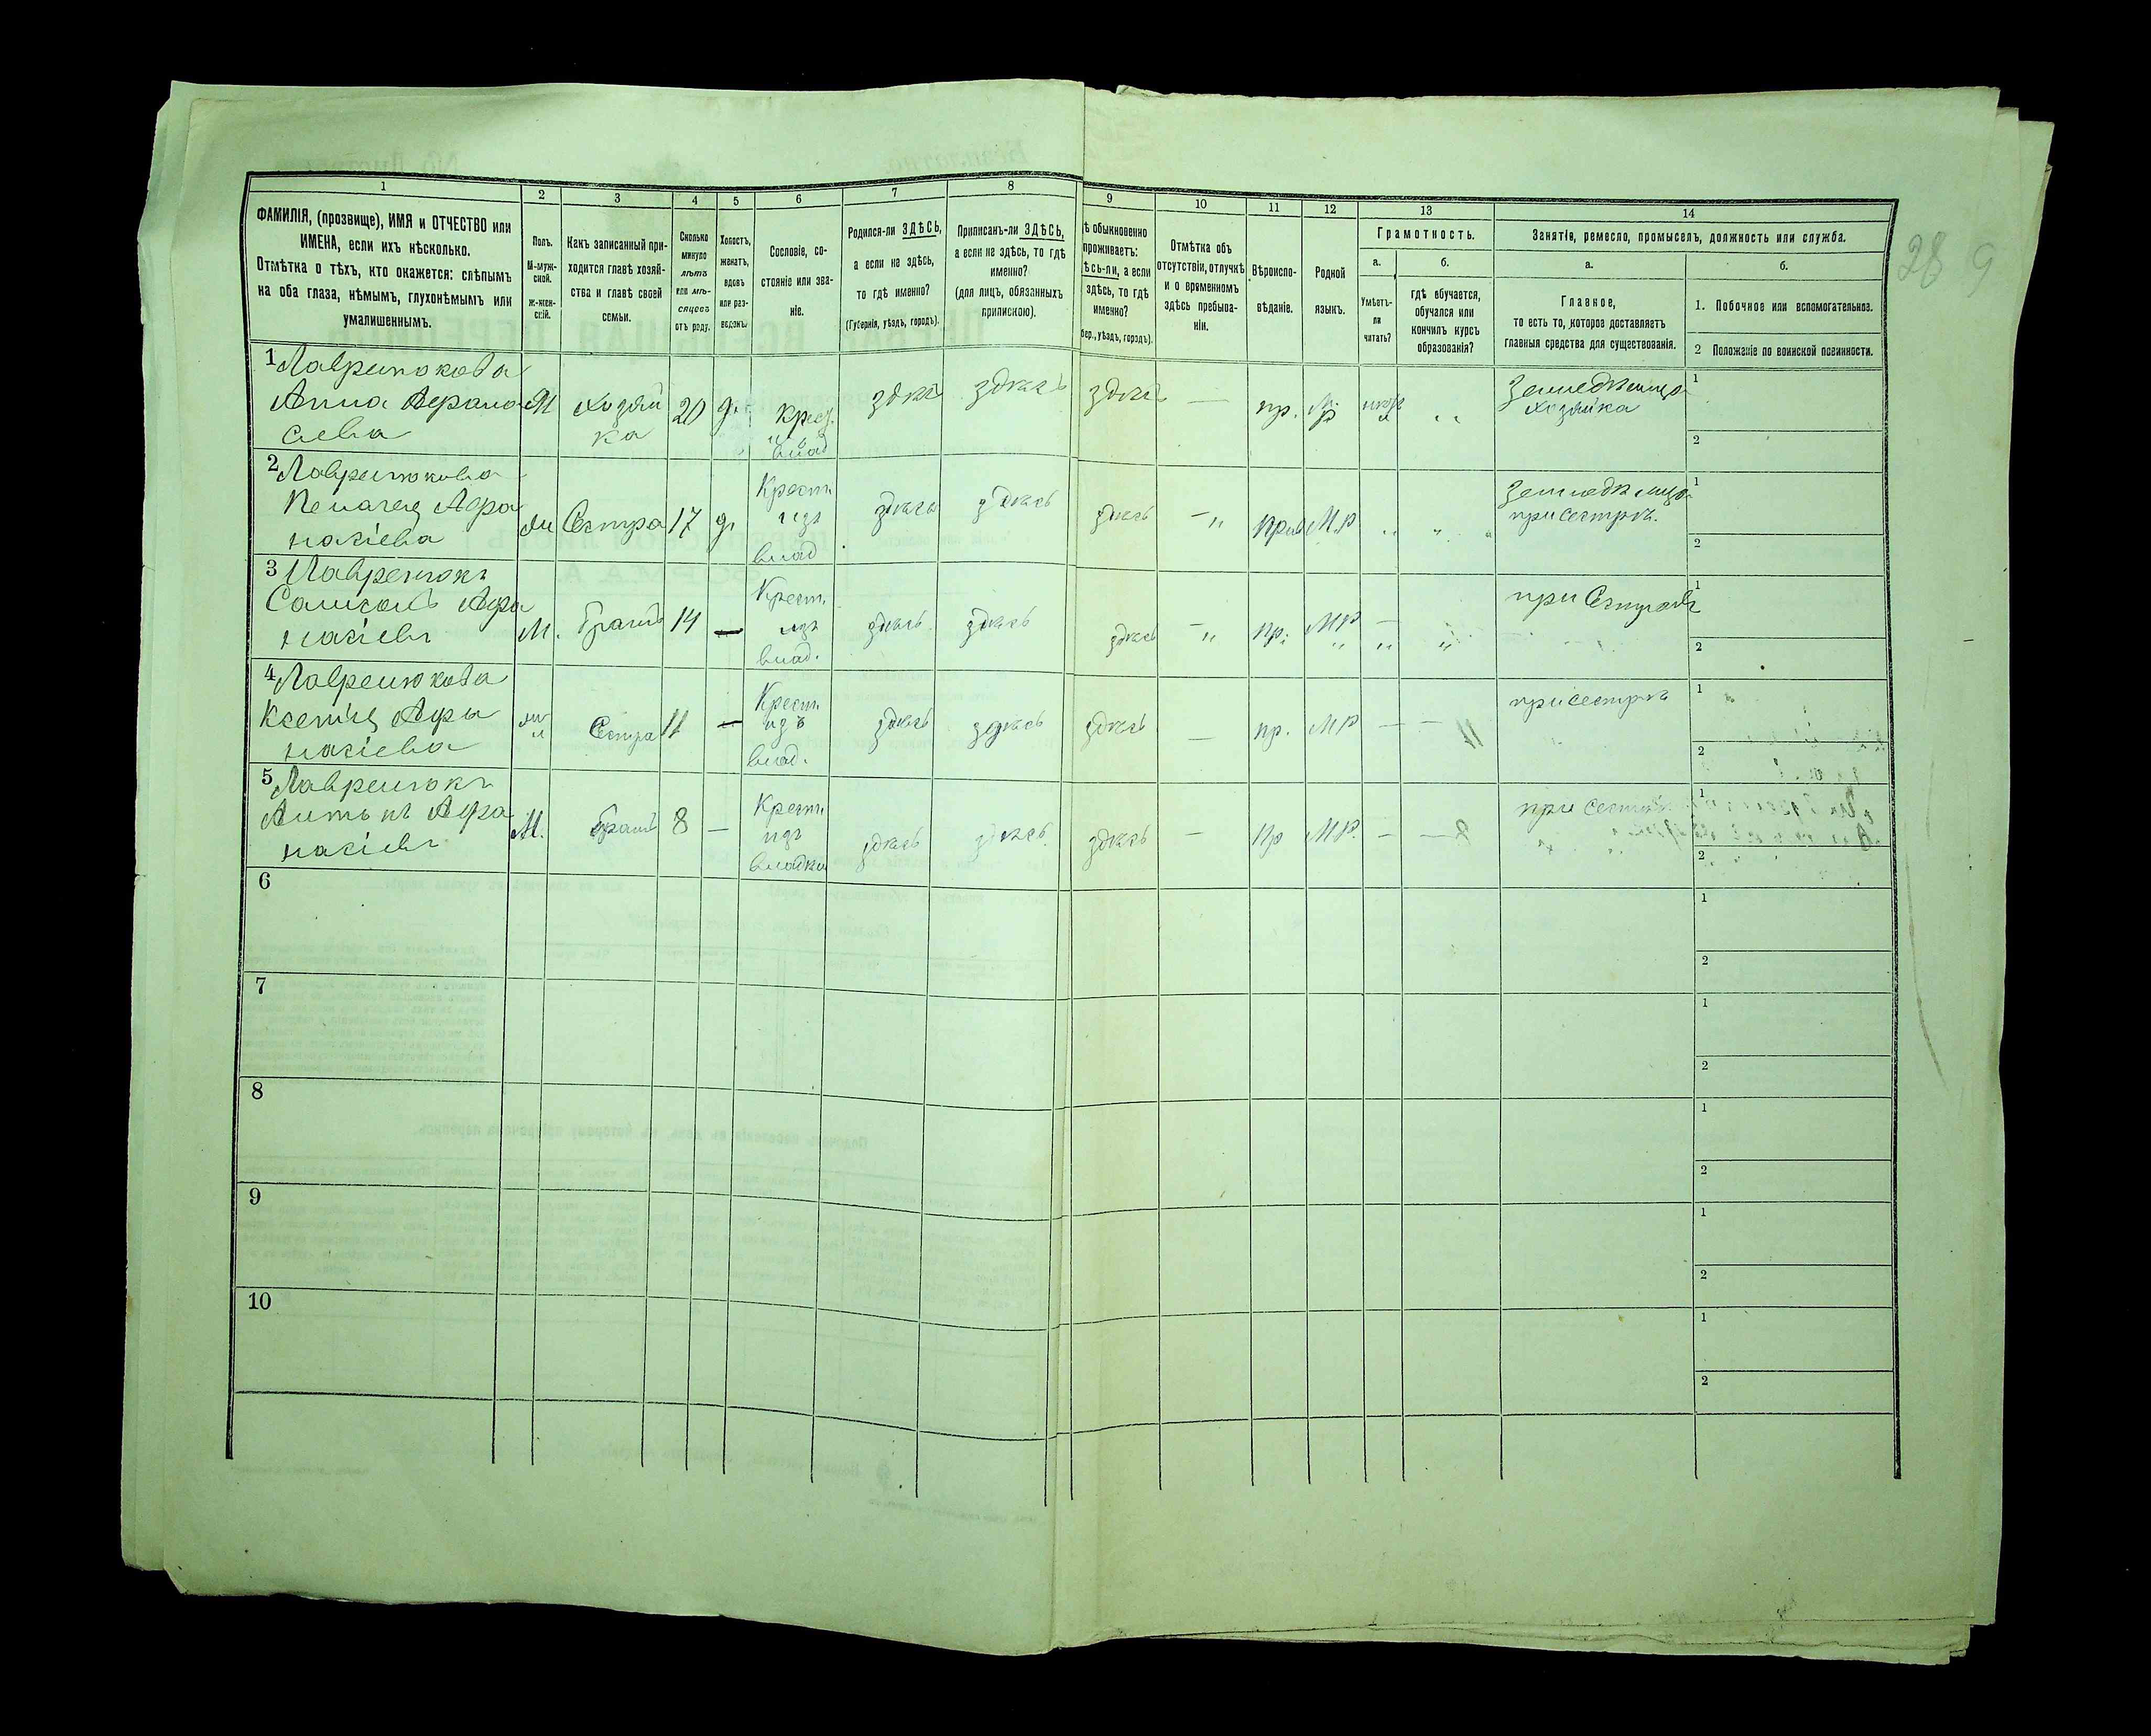 1
2
3
4
5
6
7
8
9
10
11
12
13
14
ФАМИЛІЯ, (прозвище), ИМЯ и ОТЧЕСТВО или
ИМЕНА, если ихъ нѣсколько.
Отмѣтка о тѣхъ, кто окажется: слѣпымъ
на оба глаза, нѣмымъ, глухонѣмымъ или
умалишеннымъ.
Полъ.
М-муж-
ской.
ж-жен-
скій.
Какъ записанный при-
ходится главѣ хозяй-
ства и главѣ своей
семьи.
Сколько
минуло
лѣтъ
или мѣ-
сяцевъ
отъ роду.
Холостъ,
женатъ,
вдовъ
или раз-
веденъ.
Сословіе, со-
стояніе или зва-
ніе.
Родился-ли ЗДѢСЬ,
а если не здѣсь,
то гдѣ именно?
(Губернія, уѣздъ, городъ).
Приписанъ-ли ЗДѢСЬ,
а если не здѣсь, то гдѣ
именно?
(для лицъ, обязанныхъ
припискою).
ѣ обыкновенно
проживаетъ:
ѣсь-ли, а если
здѣсь, то гдѣ
именно?
бер., уѣздъ, городъ).
Отмѣтка объ
отсутствіи, отлучкѣ
и о временномъ
здѣсь пребыва-
ніи.
Вѣроиспо-
вѣданіе.
Родной
языкъ.
Грамотность.
а.
б.
Умѣетъ-
ли
читать?
гдѣ обучается,
обучался или
кончилъ курсъ
образованія?
Занятія, ремесло, промыселъ, должность или служба.
а.
б.
Главное,
то есть то, которое доставляетъ
главныя средства для существованія.
1. Побочное или вспомогательное.
2 Положеніе по воинской повинности.
28 9
1 Лавренюкова
Анна Афана
сева
хозяй
ка
20
д.
Крест.
влад
здѣсь
здѣсь
здѣсь
—
пр.
Мр
Земледѣлица
хозяйка
1
2
2 Лавренюкова
Афа
насіева
Сестра
17
д.
Крест.
изъ
влад
здѣсь
здѣсь
здѣсь
Прав
М.р
Земледѣлица
при сестрѣ.
1
2
3 Лавренюкъ
Афа
насіевъ
М.
братъ
14
—
Крест.
изъ
влад.
здѣсь
здѣсь
здѣсь
пр.
М р
—
при Сестрахъ
1
2
4 Лавренюкова
Афа
насіева
Сестра
11
—
Крест.
изъ
влад.
здѣсь
здѣсь
здѣсь
—
пр.
М р
—
—
при сестрѣ
1
2
5 Лавренюкъ
Антонъ Афа
насіевъ
М.
братъ
8
—
Крест.
изъ
здѣсь
здѣсь
здѣсь
—
Пр
М р.
—
—
при сестрѣ
1
2
6
1
2
7
1
2
8
1
2
9
1
2
10
1
2